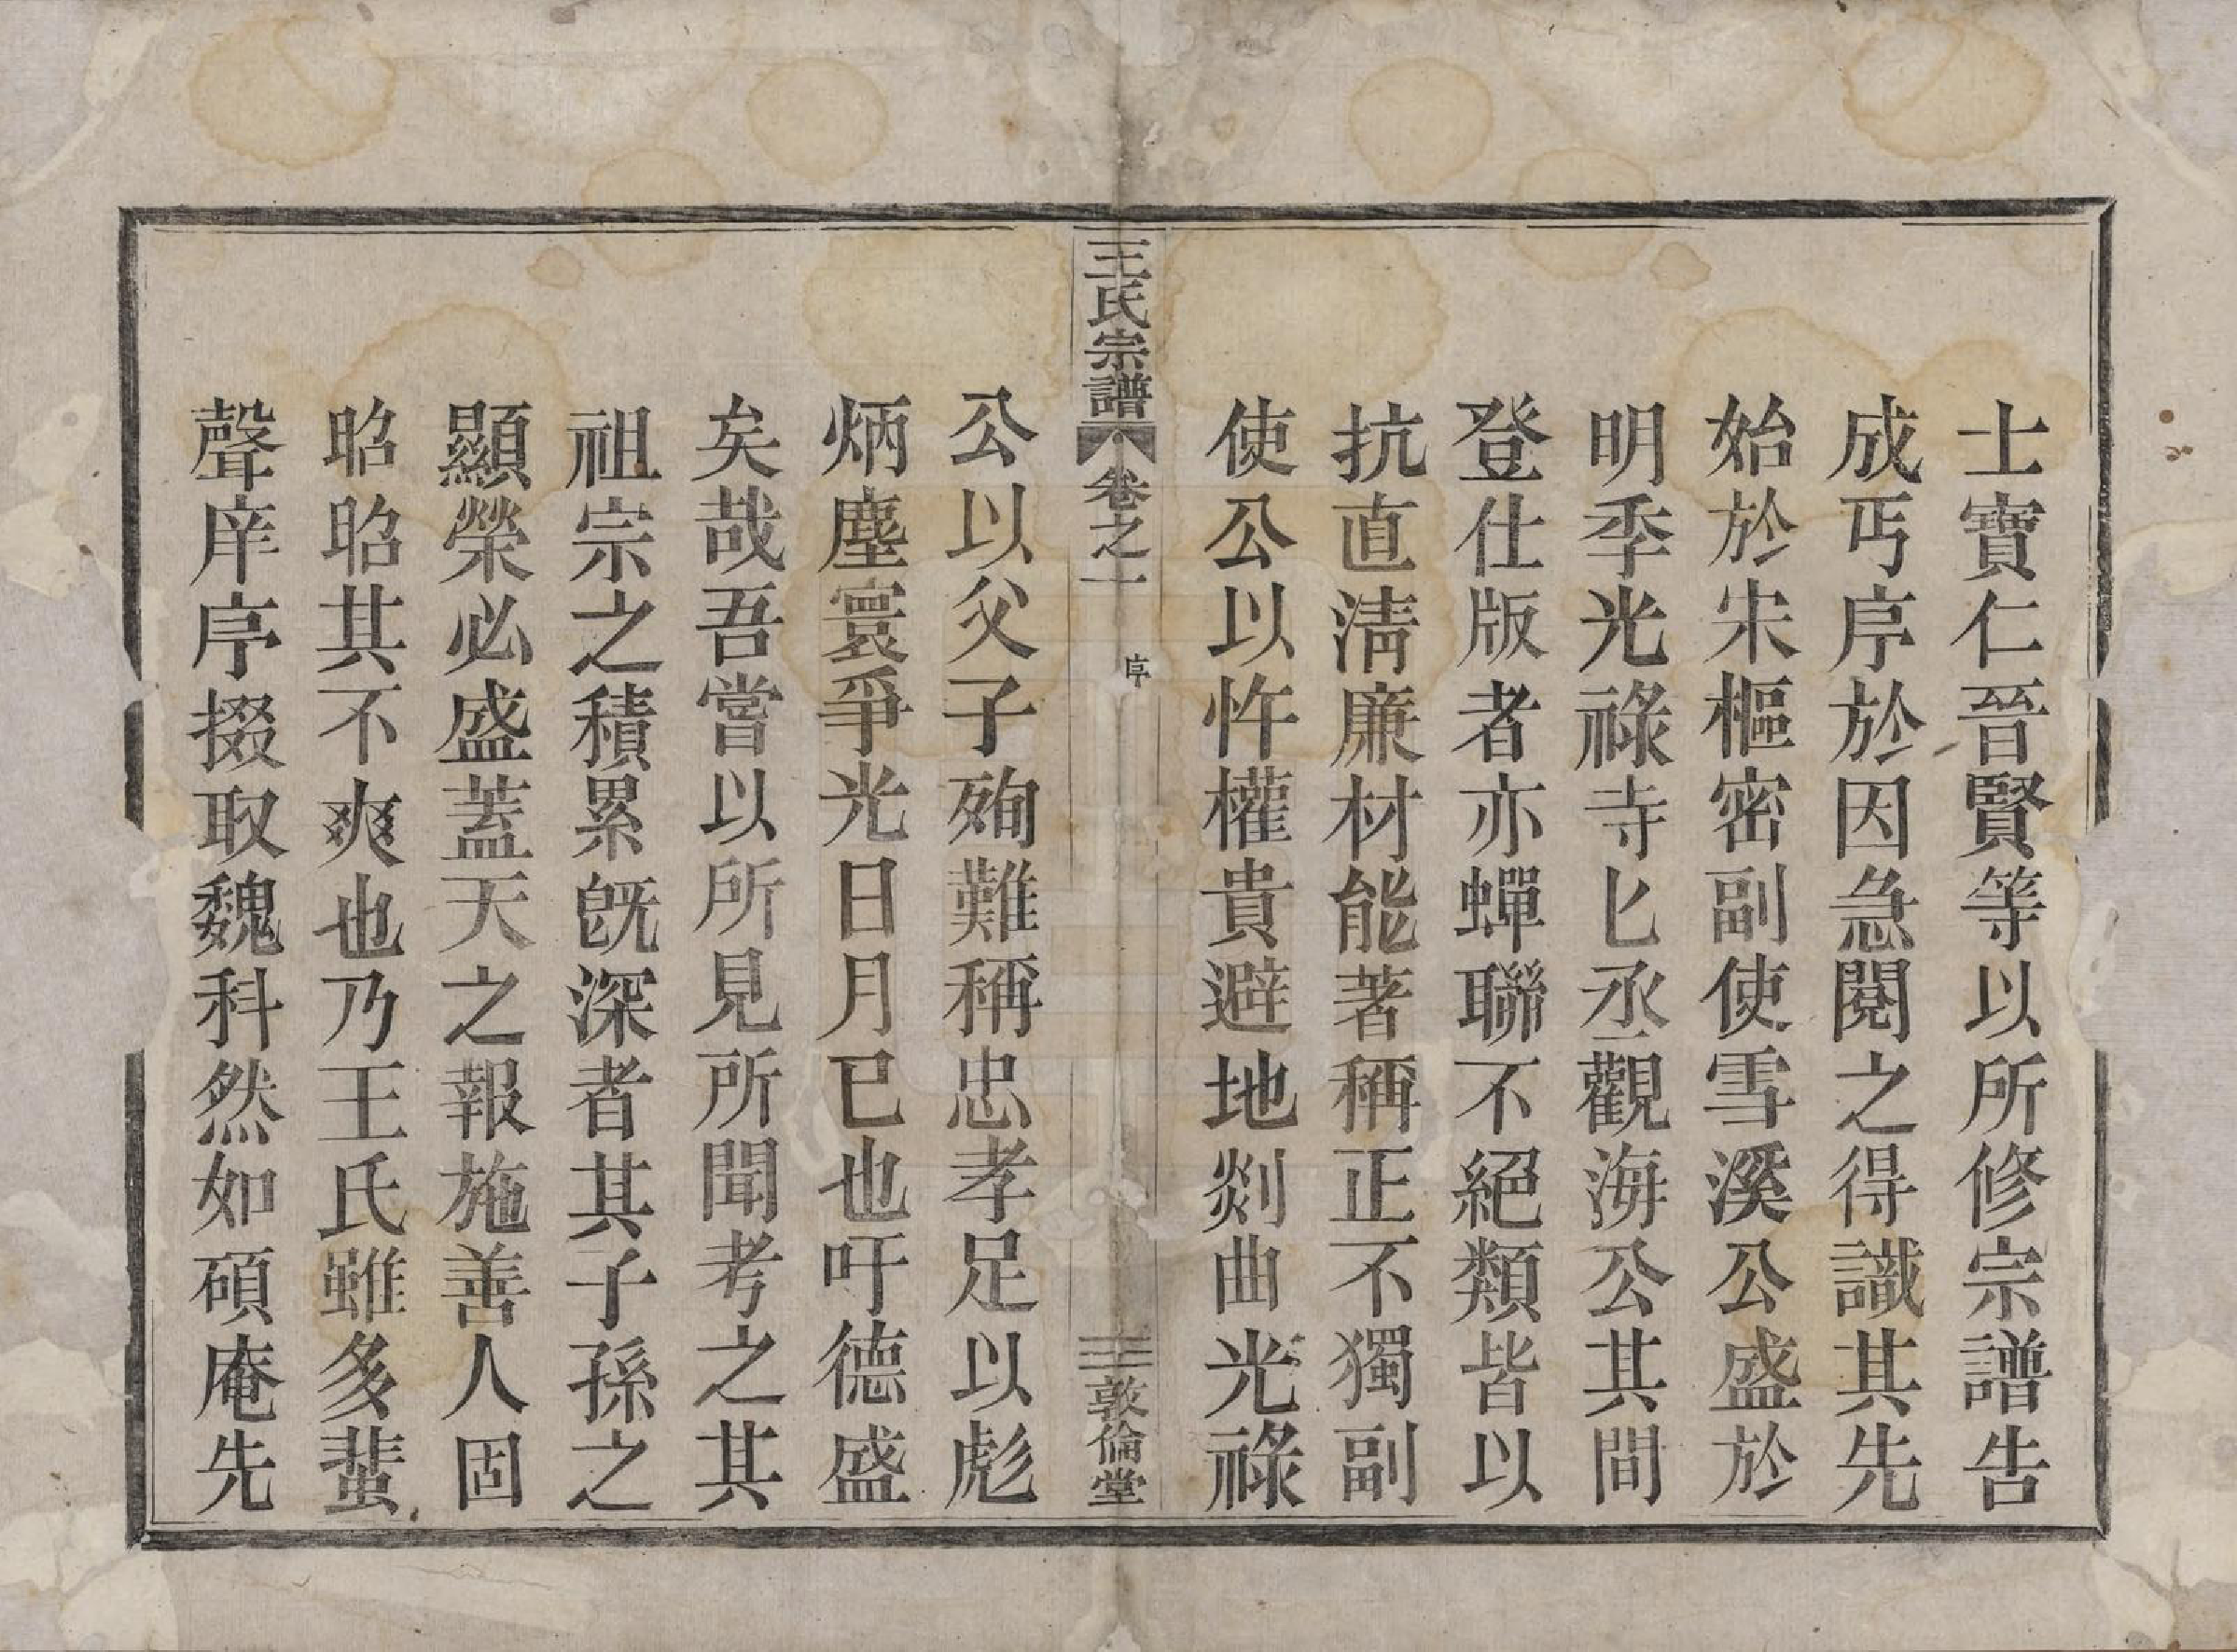 士寶仁晉賢等以所修宗譜告
成丐序於因急閱之得識其先
始於宋樞密副使雪溪公盛於
明季光祿寺匕丞觀海公其間
登仕版者亦蟬聯不絕類皆以
抗直淸廉材能著稱正不獨副
使公以忤權貴避地剡曲光祿
王氏宗譜 卷之一 序 三 敦倫堂
公以父子殉難稱忠孝足以彪
炳塵寰爭光日月已也吁德盛
矣哉吾嘗以所見所聞考之其
祖宗之積累旣深者其子孫之
顯榮必盛蓋天之報施善人固
昭昭其不爽也乃王氏雖多蜚
聲庠序掇取魏科然如碩庵先